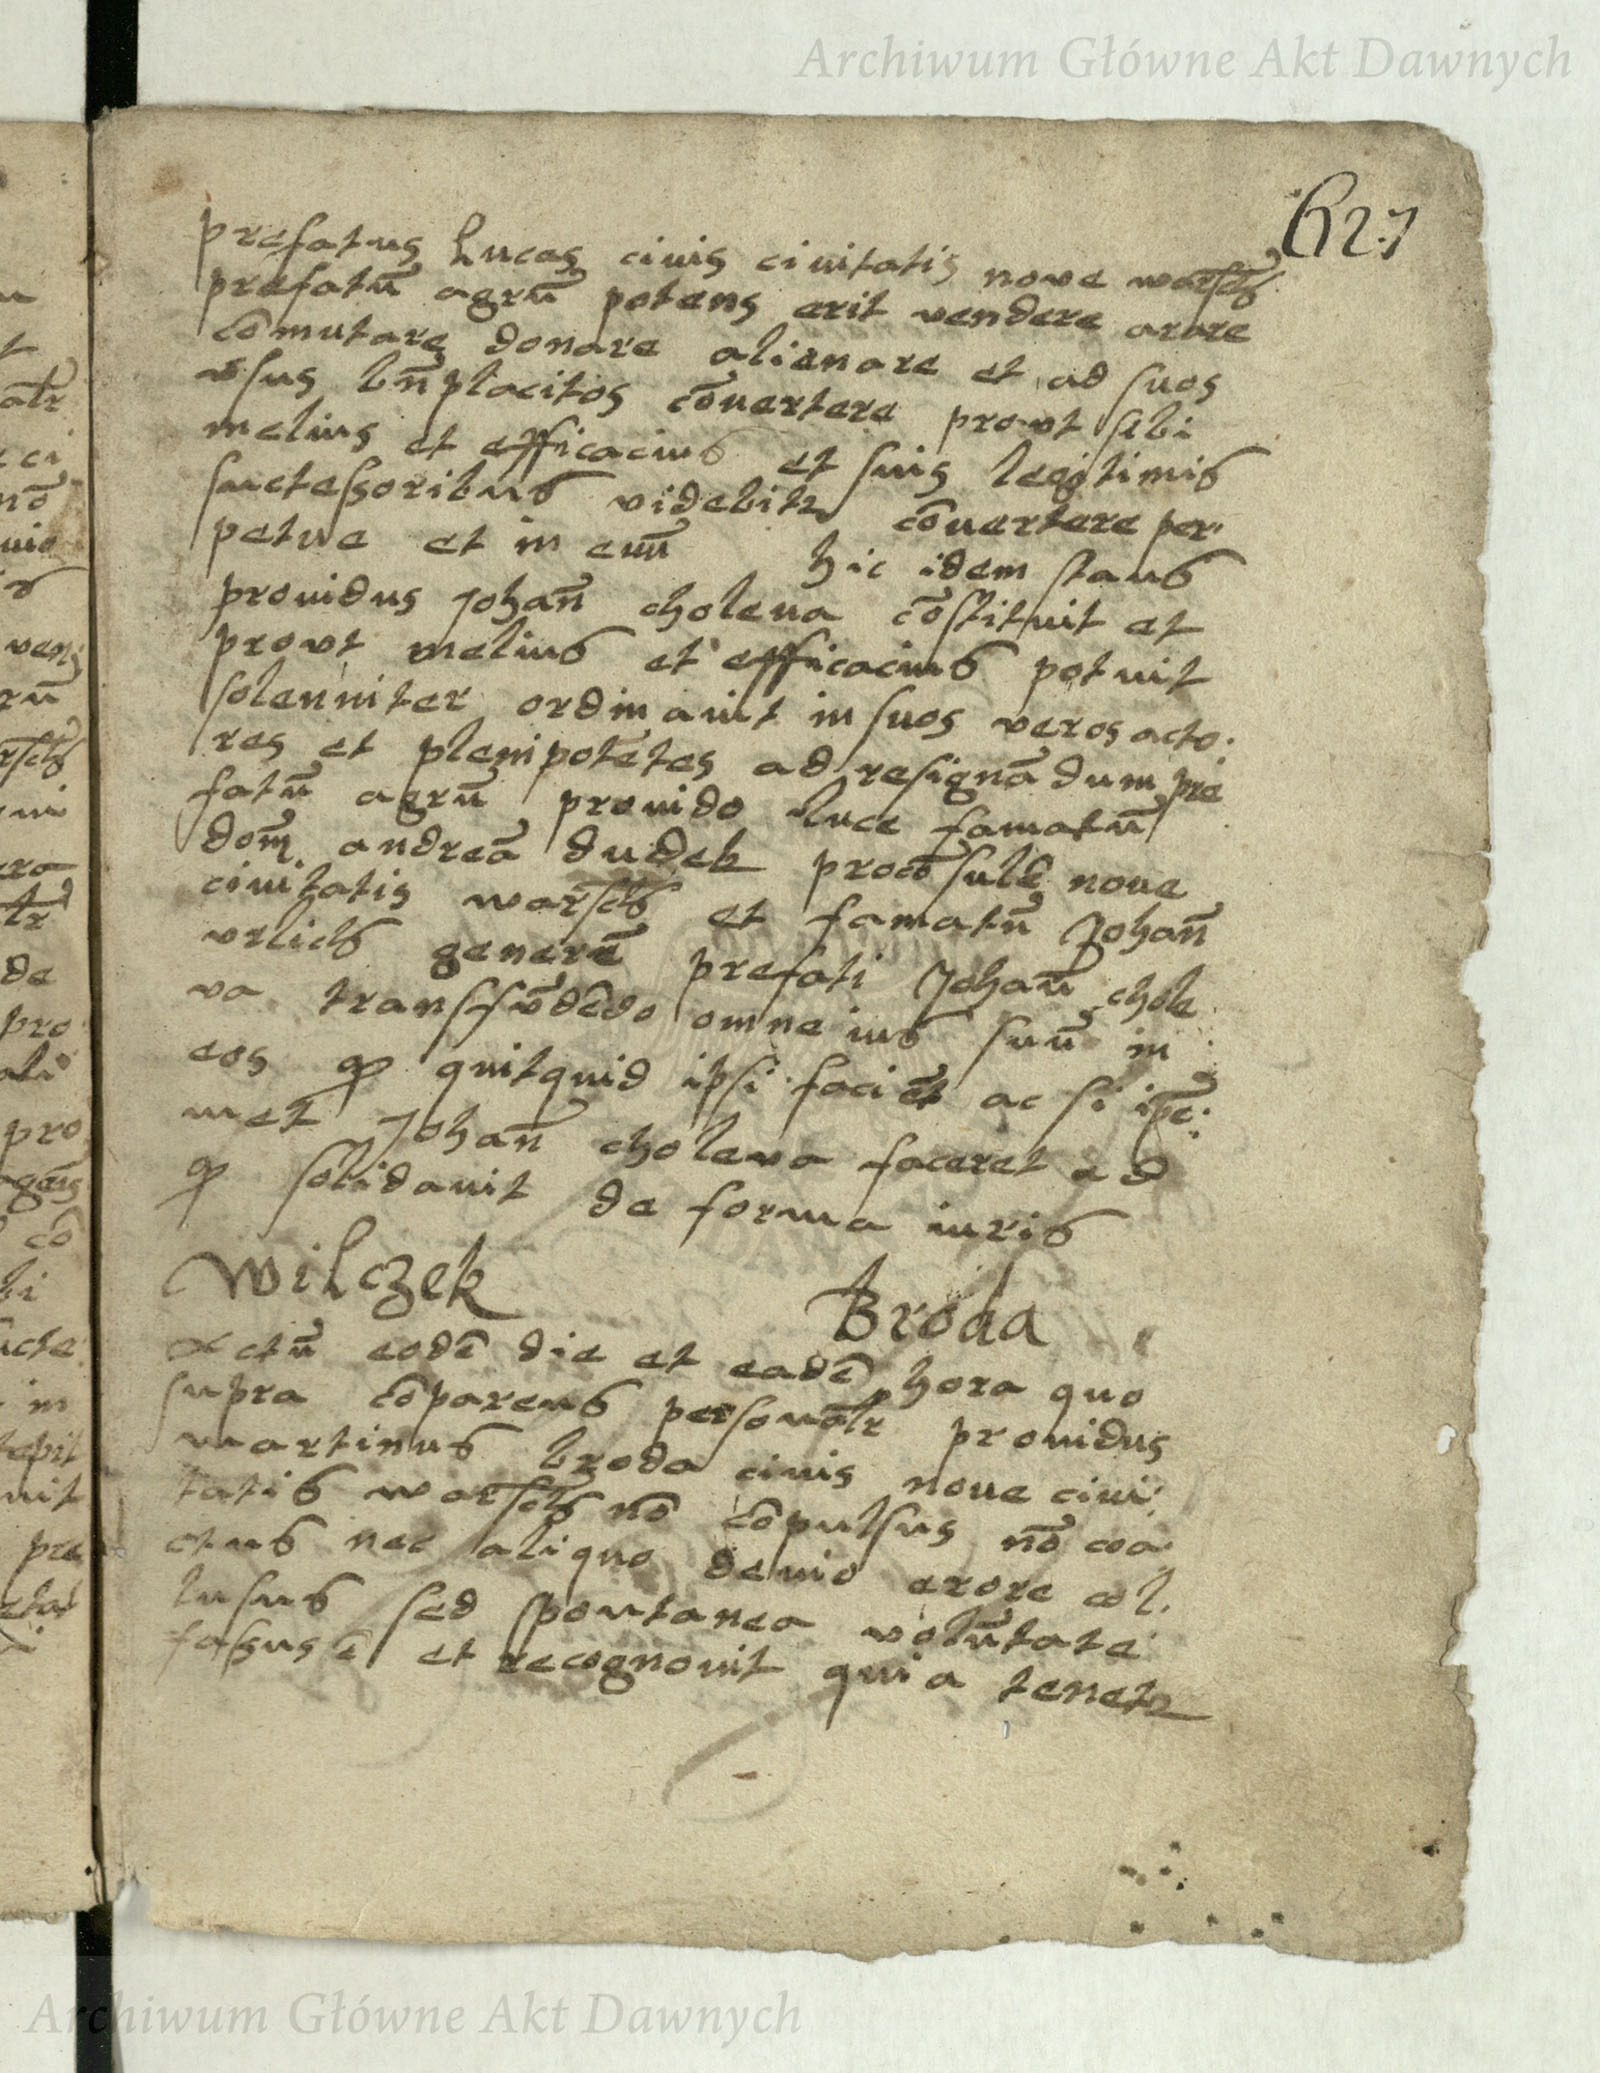 Archiwum Główne Akt Dawnych
627
prefatus Lucas ciuis ciuitatis noue warsch
prefatū agrū potens erit vendere arare
cōmutare donare alienare et ad suos
vsus bn̄placitos cōuertere prout sibi
melius et efficacius et suis legitimis
suctessoribus videbitr cōuertere per
petue et in euū hic idem stans
prouidus Johan̄ choleua cōstituit et
prout melius et efficacius potuit
solenniter ordinauit in suos veros acto
res et plenipotētes ad resignādum pre
fatū agrū prouido luce famatū
dom̄ andreā dudek procōsulē noue
ciuitatis warsch et famatū Johan̄
vrlich generū prefati Johan̄ chole
va transfūdēdo omne ius suū in
eos qp quitquid ipsi faciēt ac si ipe
met Johan̄ choleva faceret ad
qp solidauit de forma iuris
Wilczek Broda
Actū eodē die et eadē hora quo
supra cōparens personalr prouidus
martinus broda ciuis noue ciui
tatis warsch nō cōpulsus nō coa
ctus nec aliquo deuio erore col
lusus sed spontanea volūtate
fassus ē et recognouit quia tenetr
Archiwum Główne Akt Dawnych